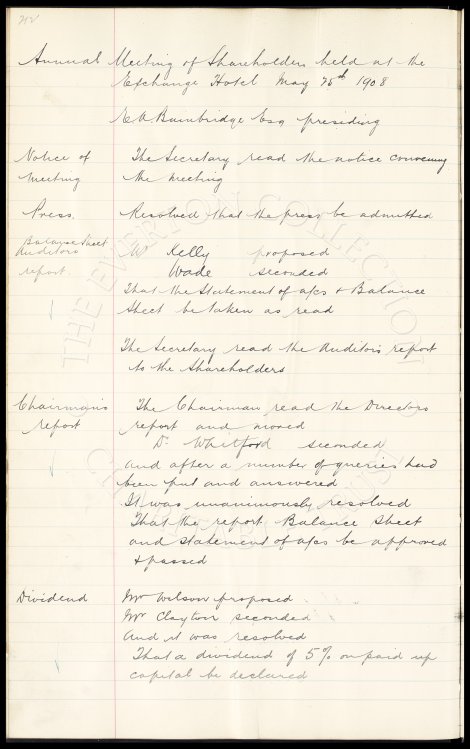 212
Annual Meeting of Shareholders held at the
Exchange Hotel May 25th 1908
E A Bainbridge Esq presiding
Notice of The Secretary read the notice convening
Meeting the Meeting
Press. Resolved that the press be admitted
Balance Sheet
Auditors Mr Kelly proposed
report. Wade seconded
That the Statement of a/cs & Balance
Sheet be taken as read
The Secretary read the Auditors report
to the Shareholders
Chairman's The Chairman read the Directors
report report and moved
Dr Whitford seconded
and after a number of queries had
been put and answered.
It was unanimously resolved
That the report Balance Sheet
and Statement of a/cs be approved
& passed
Dividend Mr Wilson proposed
Mr Clayton seconded
And it was resolved
That a dividend of 5% on paid up
capital be declared
THE EVERTON COLLECTION